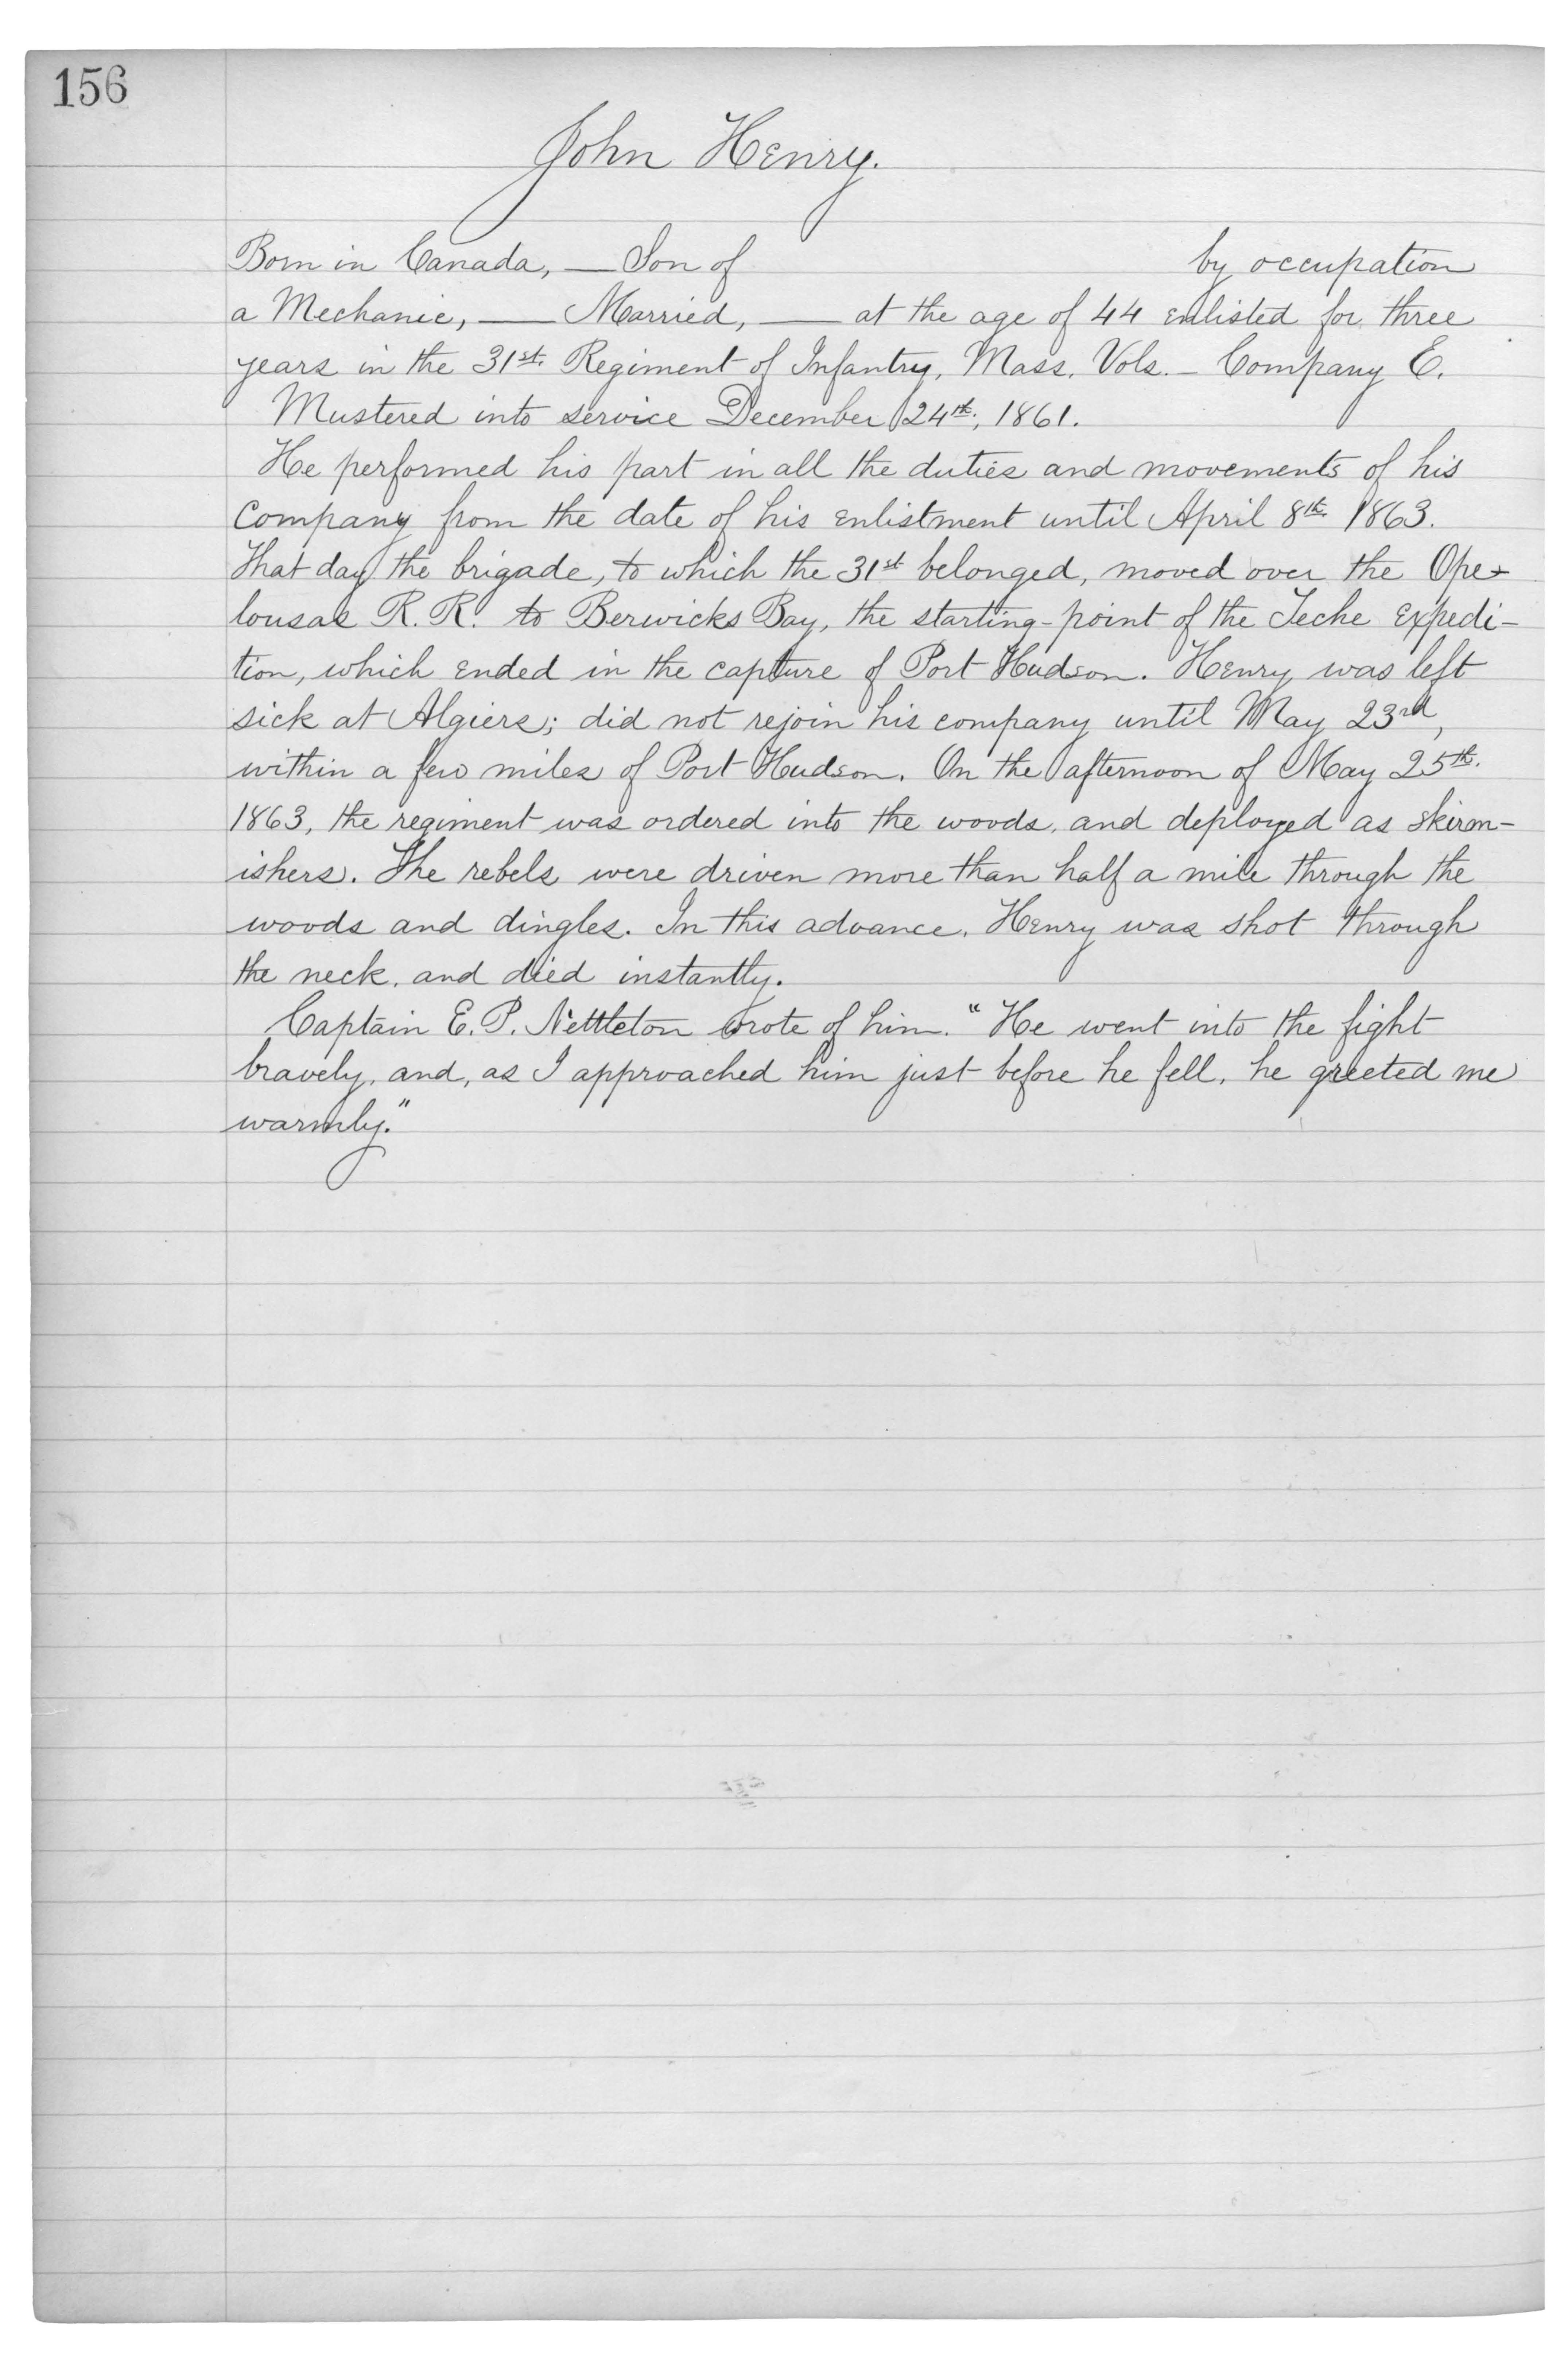 156
John Henry.
Born in Canada, — Son of by occupation
a Mechanic, — Married, — at the age of 44 enlisted for three
years in the 31st. Regiment of Infantry, Mass. Vols. – Company E.
Mustered into service December 24th., 1861.
He performed his part in all the duties and movements of his
Company from the date of his enlistment until April 8th. 1863.
That day the brigade, to which the 31st belonged, moved over the Ope-
lousas R. R. to Berwicks Bay, the starting-point of the Teche Expedi-
tion, which ended in the capture of Port Hudson. Henry was left
sick at Algiers; did not rejoin his company until May 23rd,
within a few miles of Port Hudson. On the afternoon of May 25th.
1863, the regiment was ordered into the woods, and deployed as skirm-
ishers. The rebels were driven more than half a mile through the
woods and dingles. In this advance, Henry was shot through
the neck, and died instantly.
Captain E. P. Nettleton wrote of him. "He went into the fight
bravely, and, as I approached him just before he fell, he greeted me
warmly."